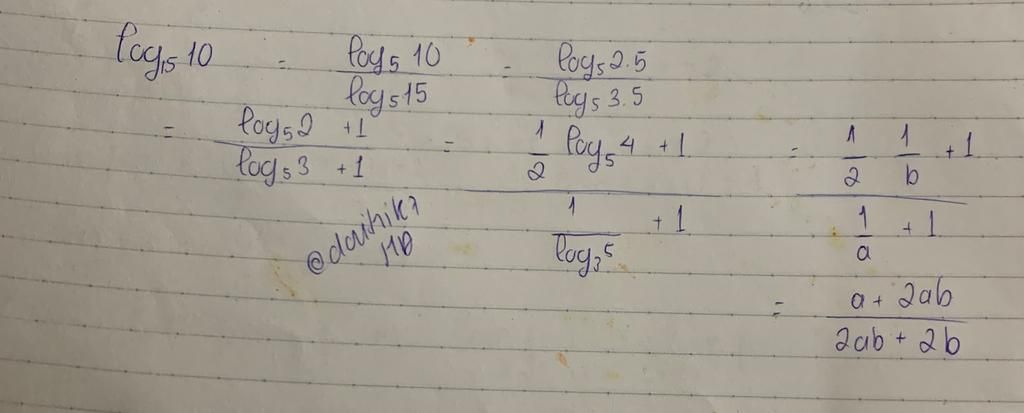 log₁₅10 = log₅10 / log₅15 = log₅2.5 / log₅3.5
= (log₅2 + 1) / (log₅3 + 1) = (1/2 log₅4 + 1) / (1/log₃5 + 1) = (1/2 1/b + 1) / (1/a + 1)
= (a + 2ab) / (2ab + 2b)